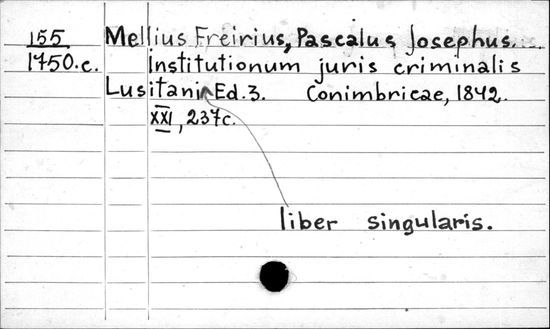 155 Mellius Freirius, Pascalus Josephus.
1750.c. Institutionum juris criminalis
Lusitani Ed.3. Conimbricae, 1842.
XXI, 237c.
liber singularis.